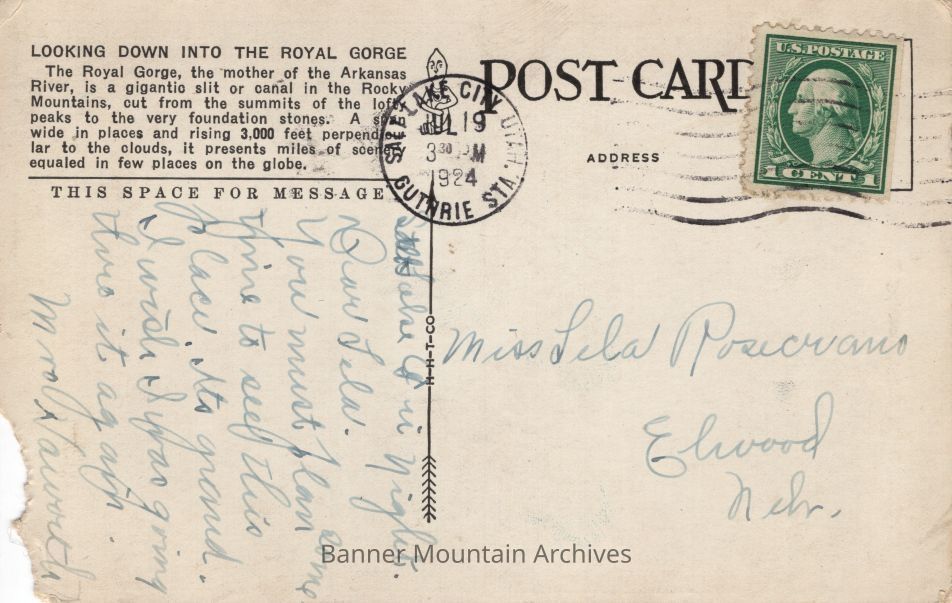 LOOKING DOWN INTO THE ROYAL GORGE
The Royal Gorge, the mother of the Arkansas
River, is a gigantic slit or canal in the Rocky
Mountains, cut from the summits of the loft
peaks to the very foundation stones. A s
wide in places and rising 3,000 feet perpend
lar to the clouds, it presents miles of scene
equaled in few places on the globe.
THIS SPACE FOR MESSAGE
POST CARD
ADDRESS
SALT LAKE CITY, UTAH.
JUL 19
3 30 PM
1924
GUTHRIE STA.
U.S. POSTAGE
1 CENT 1
H-H-T-CO
Lake Fri Night.
Dear Lela.
You must plan some
time to see this
place. Its grand.
I wish I was going
thru it again.
Mrs Haworth
Miss Lela Rosecrans
Elwood
Nebr.
Banner Mountain Archives